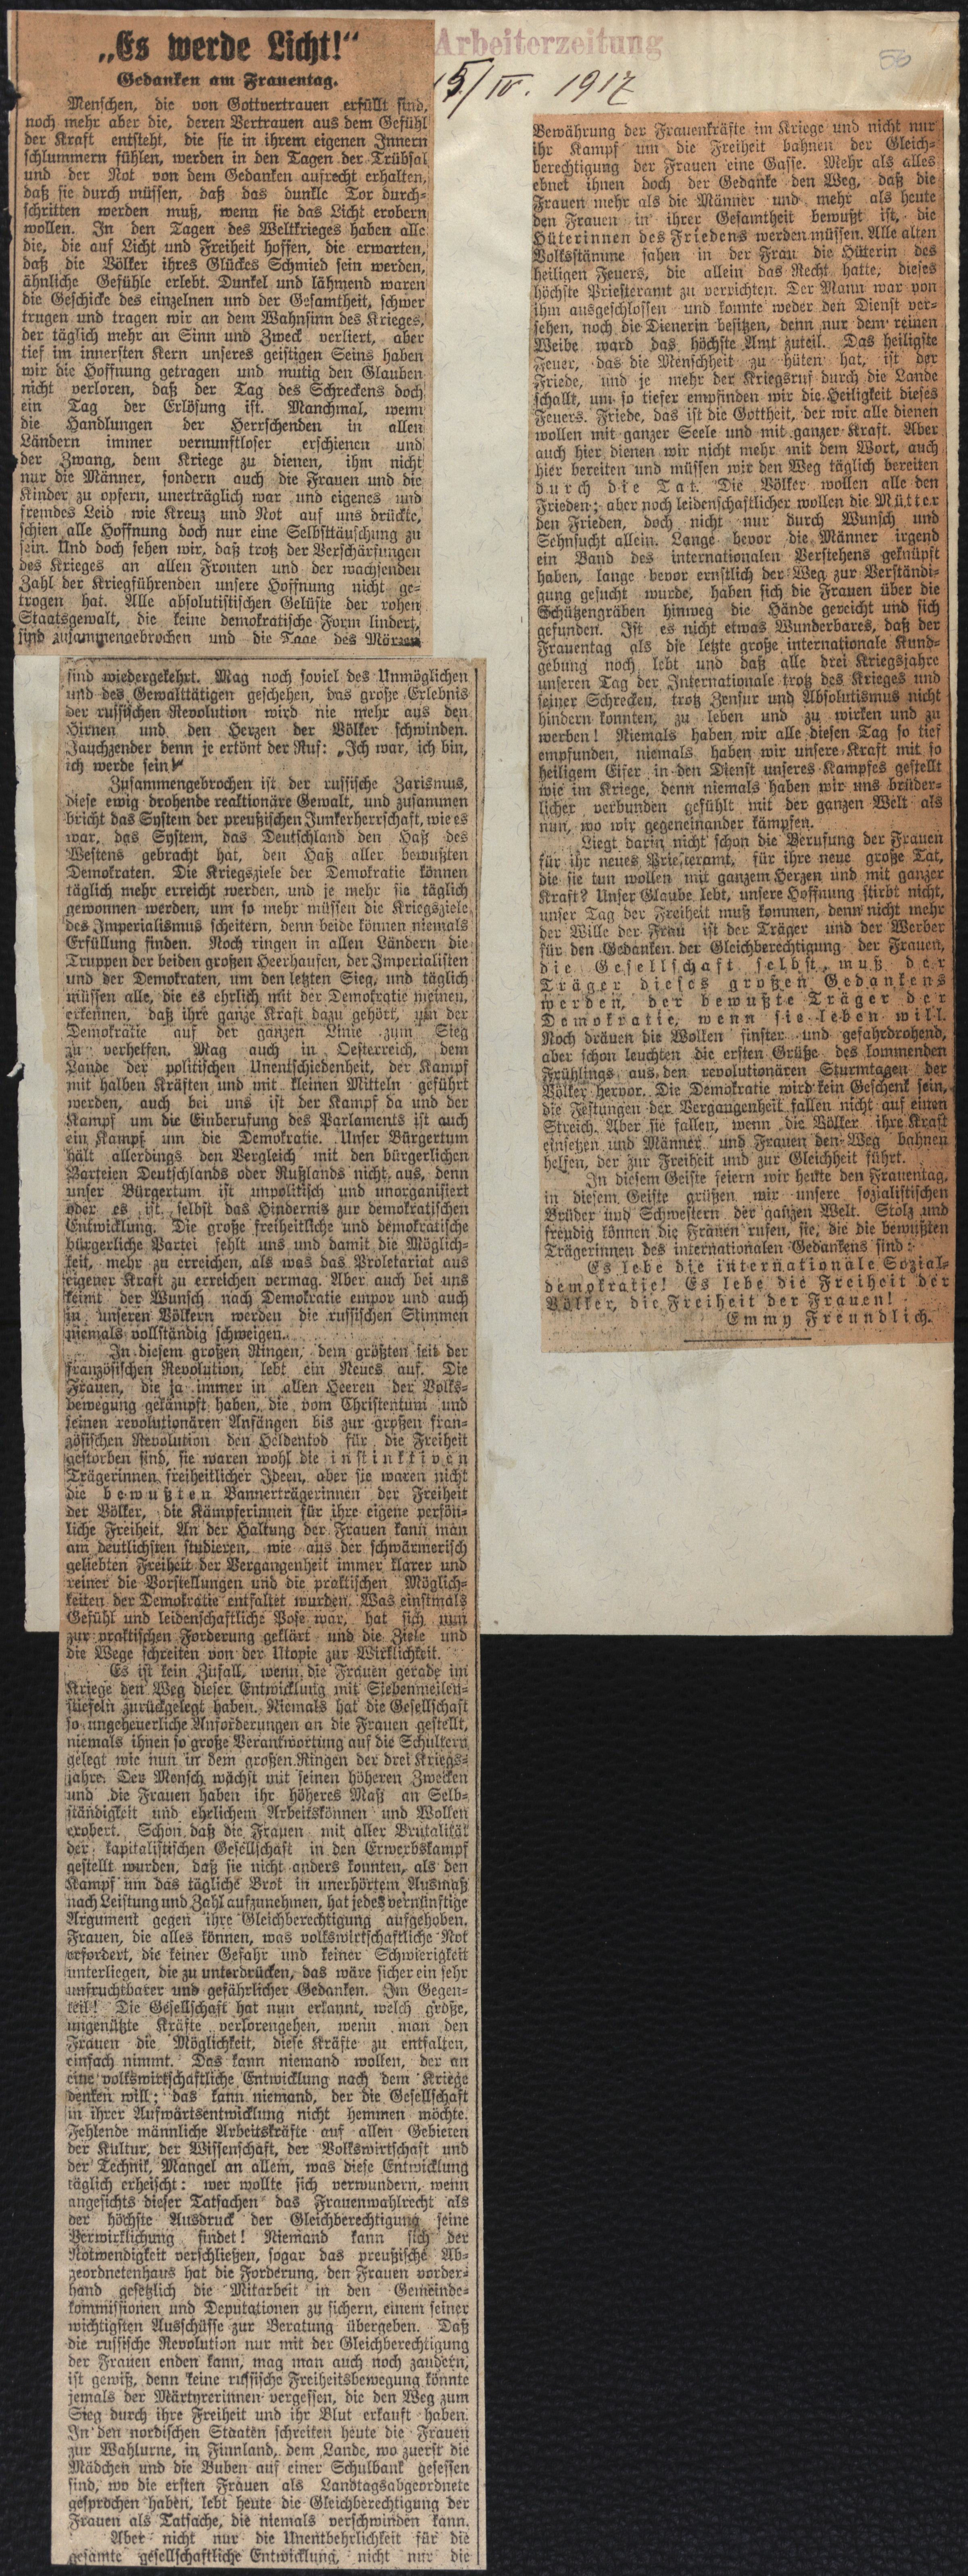 „Es werde Licht!“
Gedanken am Frauentag.
Menschen, die von Gottvertrauen erfüllt sind,
noch mehr aber die, deren Vertrauen aus dem Gefühl
der Kraft entsteht, die sie in ihrem eigenen Innern
schlummern fühlen, werden in den Tagen der Trübsal
und der Not von dem Gedanken aufrecht erhalten,
daß sie durch müssen, daß das dunkle Tor durch-
schritten werden muß, wenn sie das Licht erobern
wollen. In den Tagen des Weltkrieges haben alle
die, die auf Licht und Freiheit hoffen, die erwarten,
daß die Völker ihres Glückes Schmied sein werden,
ähnliche Gefühle erlebt. Dunkel und lähmend waren
die Geschicke des einzelnen und der Gesamtheit, schwer
trugen und tragen wir an dem Wahnsinn des Krieges,
der täglich mehr an Sinn und Zweck verliert, aber
tief im innersten Kern unseres geistigen Seins haben
wir die Hoffnung getragen und mutig den Glauben
nicht verloren, daß der Tag des Schreckens doch
ein Tag der Erlösung ist. Manchmal, wenn
die Handlungen der Herrschenden in allen
Ländern immer vernunftloser erschienen und
der Zwang, dem Kriege zu dienen, ihm nicht
nur die Männer, sondern auch die Frauen und die
Kinder zu opfern, unerträglich war und eigenes und
fremdes Leid wie Kreuz und Not auf uns drückte,
schien alle Hoffnung doch nur eine Selbsttäuschung zu
sein. Und doch sehen wir, daß trotz der Verschärfungen
des Krieges an allen Fronten und der wachsenden
Zahl der Kriegführenden unsere Hoffnung nicht ge-
trogen hat. Alle absolutistischen Gelüste der rohen
Staatsgewalt, die keine demokratische Form lindert,
sind zusammengebrochen und die Tage des Märzen
sind wiedergekehrt. Mag noch soviel des Unmöglichen
und des Gewalttätigen geschehen, das große Erlebnis
der russischen Revolution wird nie mehr aus den
Hirnen und den Herzen der Völker schwinden.
Jauchzender denn je ertönt der Ruf: „Ich war, ich bin,
ich werde sein!“
Zusammengebrochen ist der russische Zarismus,
diese ewig drohende reaktionäre Gewalt, und zusammen
bricht das System der preußischen Junkerherrschaft, wie es
war, das System, das Deutschland den Haß des
Westens gebracht hat, den Haß aller bewußten
Demokraten. Die Kriegsziele der Demokratie können
täglich mehr erreicht werden, und je mehr sie täglich
gewonnen werden, um so mehr müssen die Kriegsziele
des Imperialismus scheitern, denn beide können niemals
Erfüllung finden. Noch ringen in allen Ländern die
Truppen der beiden großen Heerhaufen, der Imperialisten
und der Demokraten, um den letzten Sieg, und täglich
müssen alle, die es ehrlich mit der Demokratie meinen,
erkennen, daß ihre ganze Kraft dazu gehört, um der
Demokratie auf der ganzen Linie zum Sieg
zu verhelfen. Mag auch in Oesterreich, dem
Lande der politischen Unentschiedenheit, der Kampf
mit halben Kräften und mit kleinen Mitteln geführt
werden, auch bei uns ist der Kampf da und der
Kampf um die Einberufung des Parlaments ist auch
ein Kampf um die Demokratie. Unser Bürgertum
hält allerdings den Vergleich mit den bürgerlichen
Parteien Deutschlands oder Rußlands nicht aus, denn
unser Bürgertum ist unpolitisch und unorganisiert
oder es ist selbst das Hindernis zur demokratischen
Entwicklung. Die große freiheitliche und demokratische
bürgerliche Partei fehlt uns und damit die Möglich-
keit, mehr zu erreichen, als was das Proletariat aus
eigener Kraft zu erreichen vermag. Aber auch bei uns
keimt der Wunsch nach Demokratie empor und auch
in unseren Völkern werden die russischen Stimmen
niemals vollständig schweigen.
In diesem großen Ringen, dem größten seit der
französischen Revolution, lebt ein Neues auf. Die
Frauen, die ja immer in allen Heeren der Volks-
bewegung gekämpft haben, die vom Christentum und
seinen revolutionären Anfängen bis zur großen fran-
zösischen Revolution den Heldentod für die Freiheit
gestorben sind, sie waren wohl die instinktiven
Trägerinnen freiheitlicher Ideen, aber sie waren nicht
die bewußten Bannerträgerinnen der Freiheit
der Völker, die Kämpferinnen für ihre eigene persön-
liche Freiheit. An der Haltung der Frauen kann man
am deutlichsten studieren, wie aus der schwärmerisch
geliebten Freiheit der Vergangenheit immer klarer und
reiner die Vorstellungen und die praktischen Möglich-
keiten der Demokratie entfaltet wurden. Was einstmals
Gefühl und leidenschaftliche Pose war, hat sich nun
zur praktischen Forderung geklärt und die Ziele und
die Wege schreiten von der Utopie zur Wirklichkeit.
Es ist kein Zufall, wenn die Frauen gerade im
Kriege den Weg dieser Entwicklung mit Siebenmeilen-
stiefeln zurückgelegt haben. Niemals hat die Gesellschaft
so ungeheuerliche Anforderungen an die Frauen gestellt,
niemals ihnen so große Verantwortung auf die Schultern
gelegt wie nun in dem großen Ringen der drei Kriegs-
jahre. Der Mensch wächst mit seinen höheren Zwecken
und die Frauen haben ihr höheres Maß an Selb-
ständigkeit und ehrlichem Arbeitskönnen und Wollen
erobert. Schon daß die Frauen mit aller Brutalität
der kapitalistischen Gesellschaft in den Erwerbskampf
gestellt wurden, daß sie nicht anders konnten, als den
Kampf um das tägliche Brot in unerhörtem Ausmaß
nach Leistung und Zahl aufzunehmen, hat jedes vernünftige
Argument gegen ihre Gleichberechtigung aufgehoben.
Frauen, die alles können, was volkswirtschaftliche Not
erfordert, die keiner Gefahr und keiner Schwierigkeit
unterliegen, die zu unterdrücken, das wäre sicher ein sehr
unfruchtbarer und gefährlicher Gedanken. Im Gegen-
teil! Die Gesellschaft hat nun erkannt, welch große,
ungenützte Kräfte verlorengehen, wenn man den
Frauen die Möglichkeit, diese Kräfte zu entfalten,
einfach nimmt. Das kann niemand wollen, der an
eine volkswirtschaftliche Entwicklung nach dem Kriege
denken will; das kann niemand, der die Gesellschaft
in ihrer Aufwärtsentwicklung nicht hemmen möchte.
Fehlende männliche Arbeitskräfte auf allen Gebieten
der Kultur, der Wissenschaft, der Volkswirtschaft und
der Technik, Mangel an allem, was diese Entwicklung
täglich erheischt: wer wollte sich verwundern, wenn
angesichts dieser Tatsachen das Frauenwahlrecht als
der höchste Ausdruck der Gleichberechtigung seine
Verwirklichung findet! Niemand kann sich der
Notwendigkeit verschließen, sogar das preußische Ab-
geordnetenhaus hat die Forderung, den Frauen vorder-
hand gesetzlich die Mitarbeit in den Gemeinde-
kommissionen und Deputationen zu sichern, einem seiner
wichtigsten Ausschüsse zur Beratung übergeben. Daß
die russische Revolution nur mit der Gleichberechtigung
der Frauen enden kann, mag man auch noch zaudern,
ist gewiß, denn keine russische Freiheitsbewegung könnte
jemals der Märtyrerinnen vergessen, die den Weg zum
Sieg durch ihre Freiheit und ihr Blut erkauft haben.
In den nordischen Staaten schreiten heute die Frauen
zur Wahlurne, in Finnland, dem Lande, wo zuerst die
Mädchen und die Buben auf einer Schulbank gesessen
sind, wo die ersten Frauen als Landtagsabgeordnete
gesprochen haben, lebt heute die Gleichberechtigung der
Frauen als Tatsache, die niemals verschwinden kann.
Aber nicht nur die Unentbehrlichkeit für die
gesamte gesellschaftliche Entwicklung, nicht nur die
Arbeiterzeitung
15/IV. 1917
56
Bewährung der Frauenkräfte im Kriege und nicht nur
ihr Kampf um die Freiheit bahnen der Gleich-
berechtigung der Frauen eine Gasse. Mehr als alles
ebnet ihnen doch der Gedanke den Weg, daß die
Frauen mehr als die Männer und mehr als heute
den Frauen in ihrer Gesamtheit bewußt ist, die
Hüterinnen des Friedens werden müssen. Alle alten
Volksstämme sahen in der Frau die Hüterin des
heiligen Feuers, die allein das Recht hatte, dieses
höchste Priesteramt zu verrichten. Der Mann war von
ihm ausgeschlossen und konnte weder den Dienst ver-
sehen, noch die Dienerin besitzen, denn nur dem reinen
Weibe ward das höchste Amt zuteil. Das heiligste
Feuer, das die Menschheit zu hüten hat, ist der
Friede, und je mehr der Kriegsruf durch die Lande
schallt, um so tiefer empfinden wir die Heiligkeit dieses
Feuers. Friede, das ist die Gottheit, der wir alle dienen
wollen mit ganzer Seele und mit ganzer Kraft. Aber
auch hier dienen wir nicht mehr mit dem Wort, auch
hier bereiten und müssen wir den Weg täglich bereiten
durch die Tat. Die Völker wollen alle den
Frieden; aber noch leidenschaftlicher wollen die Mütter
den Frieden, doch nicht nur durch Wunsch und
Sehnsucht allein. Lange bevor die Männer irgend
ein Band des internationalen Verstehens geknüpft
haben, lange bevor ernstlich der Weg zur Verständi-
gung gesucht wurde, haben sich die Frauen über die
Schützengräben hinweg die Hände gereicht und sich
gefunden. Ist es nicht etwas Wunderbares, daß der
Frauentag als die letzte große internationale Kund-
gebung noch lebt und daß alle drei Kriegsjahre
unseren Tag der Internationale trotz des Krieges und
seiner Schrecken, trotz Zensur und Absolutismus nicht
hindern konnten, zu leben und zu wirken und zu
werben! Niemals haben wir alle diesen Tag so tief
empfunden, niemals haben wir unsere Kraft mit so
heiligem Eifer in den Dienst unseres Kampfes gestellt
wie im Kriege, denn niemals haben wir uns brüder-
licher verbunden gefühlt mit der ganzen Welt als
nun, wo wir gegeneinander kämpfen.
Liegt darin nicht schon die Berufung der Frauen
für ihr neues Priesteramt, für ihre neue große Tat,
die sie tun wollen mit ganzem Herzen und mit ganzer
Kraft? Unser Glaube lebt, unsere Hoffnung stirbt nicht,
unser Tag der Freiheit muß kommen, denn nicht mehr
der Wille der Frau ist der Träger und der Werber
für den Gedanken der Gleichberechtigung der Frauen,
die Gesellschaft selbst muß der
Träger dieses großen Gedankens
werden, der bewußte Träger der
Demokratie, wenn sie leben will.
Noch dräuen die Wolken finster und gefahrdrohend,
aber schon leuchten die ersten Grüße des kommenden
Frühlings aus den revolutionären Sturmtagen der
Völker hervor. Die Demokratie wird kein Geschenk sein,
die Festungen der Vergangenheit fallen nicht auf einen
Streich. Aber sie fallen, wenn die Völker ihre Kraft
einsetzen und Männer und Frauen den Weg bahnen
helfen, der zur Freiheit und zur Gleichheit führt.
In diesem Geiste feiern wir heute den Frauentag,
in diesem Geiste grüßen wir unsere sozialistischen
Brüder und Schwestern der ganzen Welt. Stolz und
freudig können die Frauen rufen, sie, die die bewußten
Trägerinnen des internationalen Gedankens sind:
Es lebe die internationale Sozial-
demokratie! Es lebe die Freiheit der
Völker, die Freiheit der Frauen!
Emmy Freundlich.